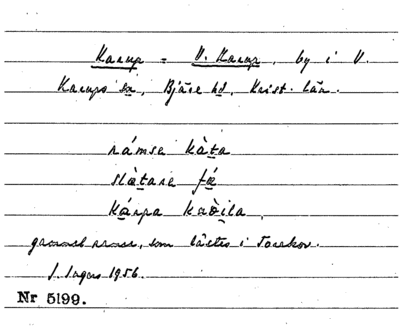 Karup = V. Karup, by i V.
Karups sn, Bjäre hd, Krist. län.
rámsa kàta
slàtare fæ
kárpa kaòila.
gammal ramsa, som lästes i Torekov.
I. Ingers 1956.
Nr 5199.